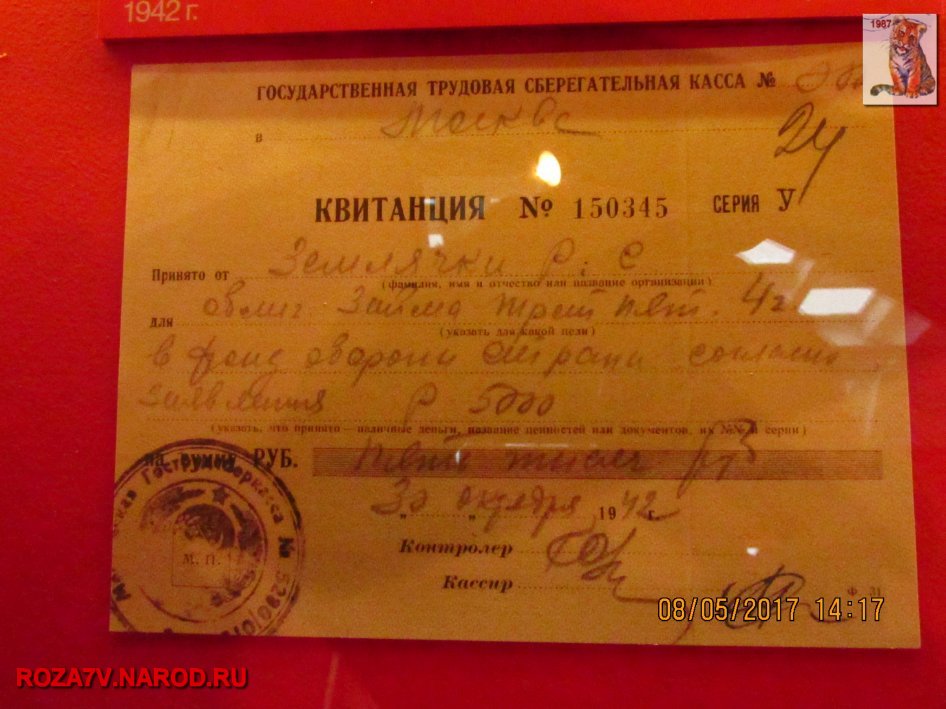 1942 г.
1987
ГОСУДАРСТВЕННАЯ ТРУДОВАЯ СБЕРЕГАТЕЛЬНАЯ КАССА №
в Москве
24
КВИТАНЦИЯ № 150345 СЕРИЯ У
Принято от Землячки Р. С
(фамилия, имя и отчество или название организации)
для облиг. Займа трет пят. 4г
(указать для какой цели)
в фонд оборони страни согласно
заявления Р 5000
(указать, что принято—наличные деньги, название ценностей или документов, их №№ и серии)
на сумму РУБ. Пять тысяч руб
М. П.
„30„ октября 1942 г.
Контролер
Кассир
Ф. 31
08/05/2017 14:17
ROZA7V.NAROD.RU